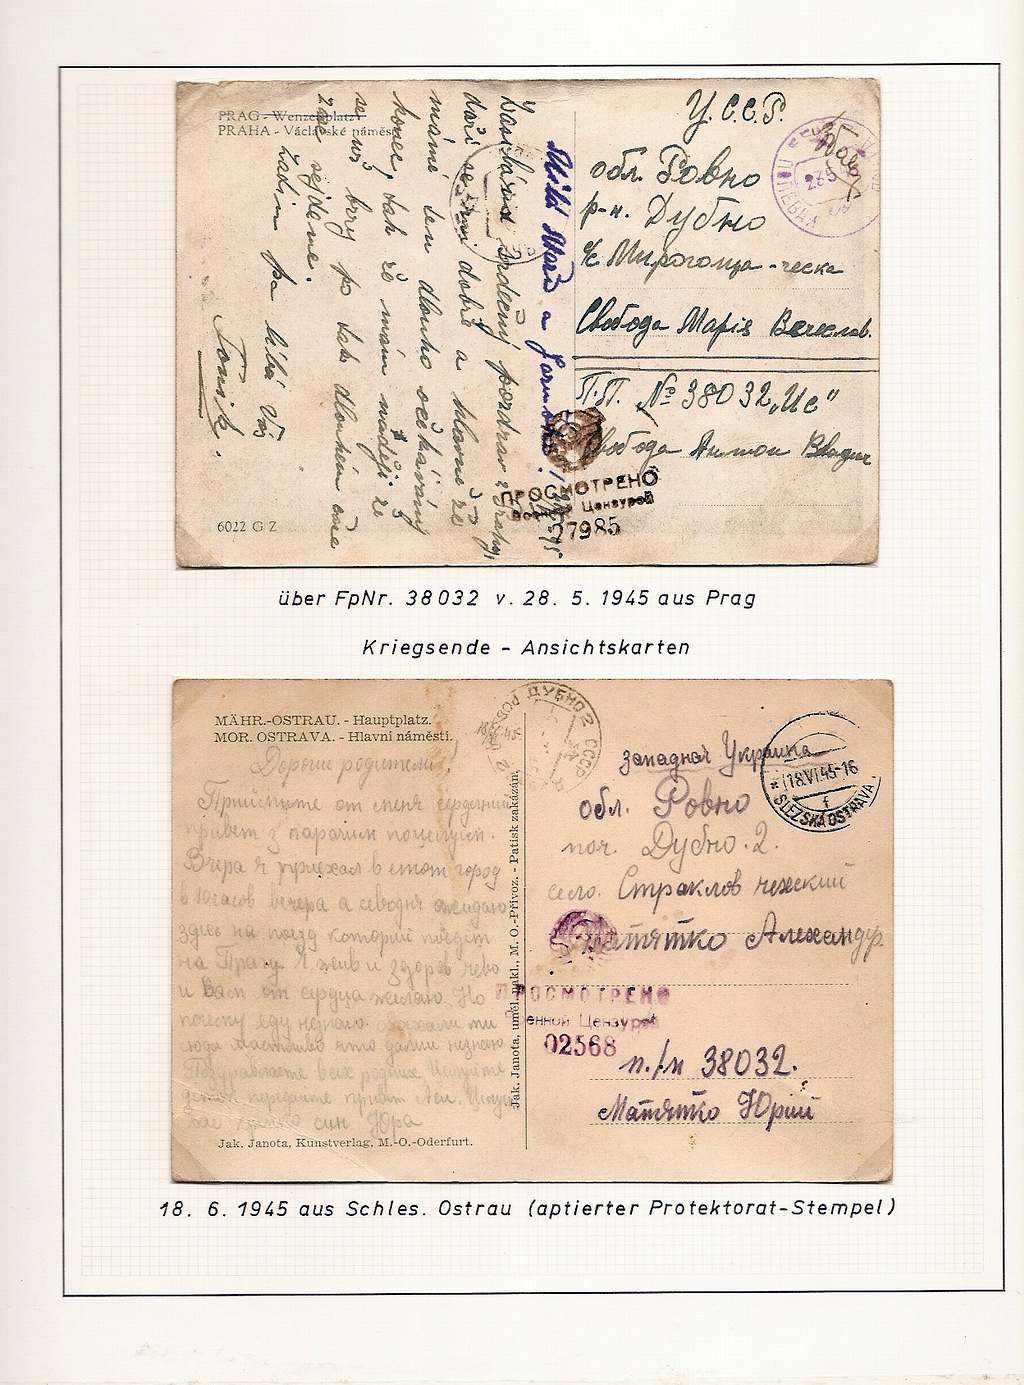 PRAG - Wenzelplatz
PRAHA - Václavské náměstí
Milá Maří a
Zasílám srdečný pozdrav z Prahy,
daří se mi dobře a hlavně že
máme ten dlouho očekávaný
konec, tak že mám naději že
se už brzy po tak dlouhém čase
zase sejdeme.
Zatím Vás líbá Váš
Toník.
6022 G Z
У.С.С.Р.
обл. Ровно
р-н. Дубно
с. Мирогоща-ческа
Свобода Марія Вечеслав.
П.П. № 38032 „Ис"
Свобода Антон
ПОЛЕВАЯ
ПРОСМОТРЕНО
Военной Цензурой
27985
über FpNr. 38032 v. 28. 5. 1945 aus Prag
Kriegsende - Ansichtskarten
MÄHR.-OSTRAU. - Hauptplatz.
MOR. OSTRAVA. - Hlavní náměstí.
Дороги родители!
Прийміте от меня сердечний
привет з гарячим поцелуєм.
Вчера я приехал в етот город
в 10 часов вечера а севодня ожидаю
здесь на поезд которий поедет
на Прагу. Я жив и здоров чево
и Вам от сердца желаю. Но
почему еду незнаю. Заехали ми
сюда что дальш незнаю
всех родних
передайте привет
Вас сын Юра
Jak. Janota, Kunstverlag, M.-O.-Oderfurt.
Jak. Janota, uměl. nakl., M. O.-Přívoz. - Patisk zakázán.
ДУБНО 2 СССР
18.VI.45-16
SLEZSKÁ OSTRAVA
западная Украина
обл. Ровно
поч. Дубно. 2.
село. Страклов чешский
Матятко Александр.
ПРОСМОТРЕНО
Военной Цензурой
02568
п./п 38032.
Матятко Юрий
18. 6. 1945 aus Schles. Ostrau (aptierter Protektorat-Stempel)